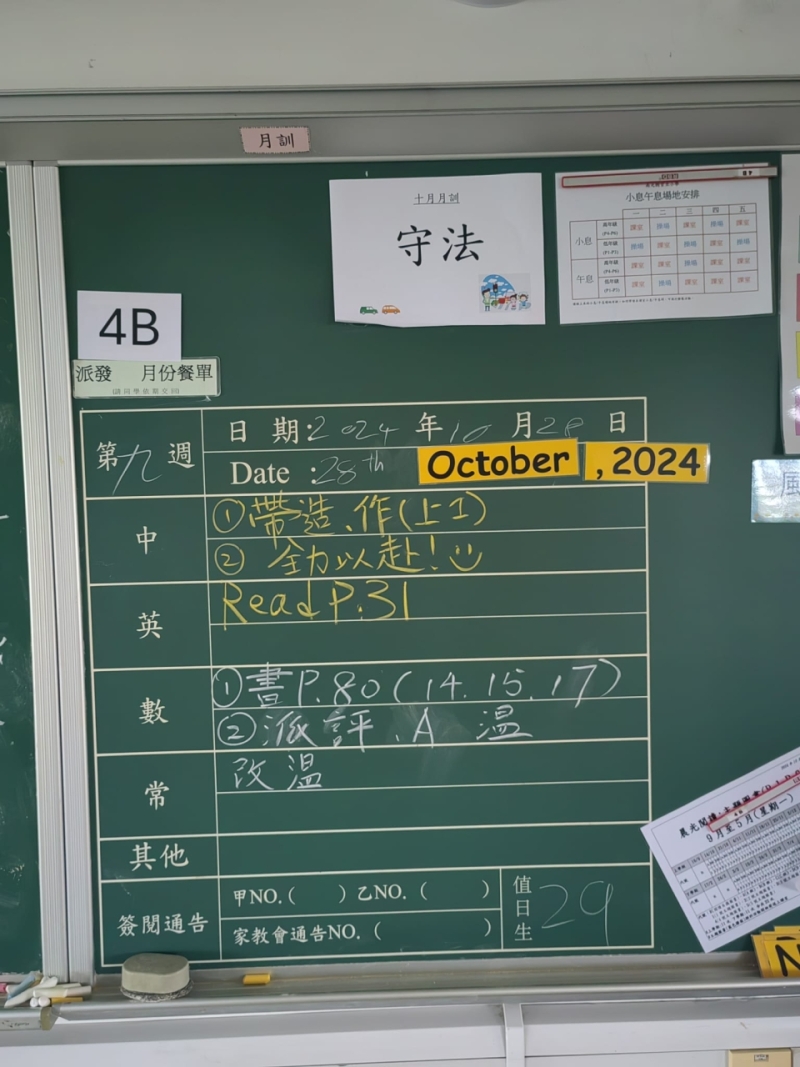 月訓
十月月訓
守法
小息午息場地安排
一 二 三 四 五
小息
高年級 (P4-P6) 課室 操場 課室 操場 課室
低年級 (P1-P3) 操場 課室 操場 課室 操場
午息
高年級 (P4-P6) 課室 課室 操場 課室 課室
低年級 (P1-P3) 課室 操場 課室 課室 課室
4B
派發 月份餐單
第九週
日期:2024年10月28日
Date :28th October ,2024
中
①帶造、作(上I)
② 全力以赴!
英
Read P.31
數
①書P.80(14.15.17)
②派評、A 溫
常
改溫
其他
簽閱通告
甲NO.( )乙NO.( )
家教會通告NO.( )
值日生
29
風
9月至5月(星期一)